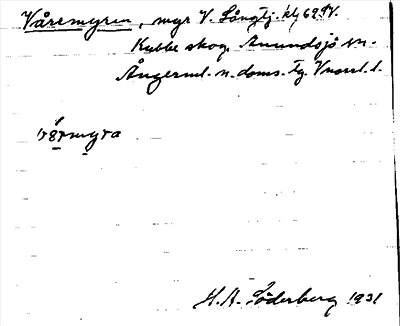 Vårsmyren, myr V. Långtj. kbl 62 SV.
Kubbe skog Anundsjö sn.
Ångerml. n. doms. tg. Vnorrl. l.
H. A. Söderberg 1931